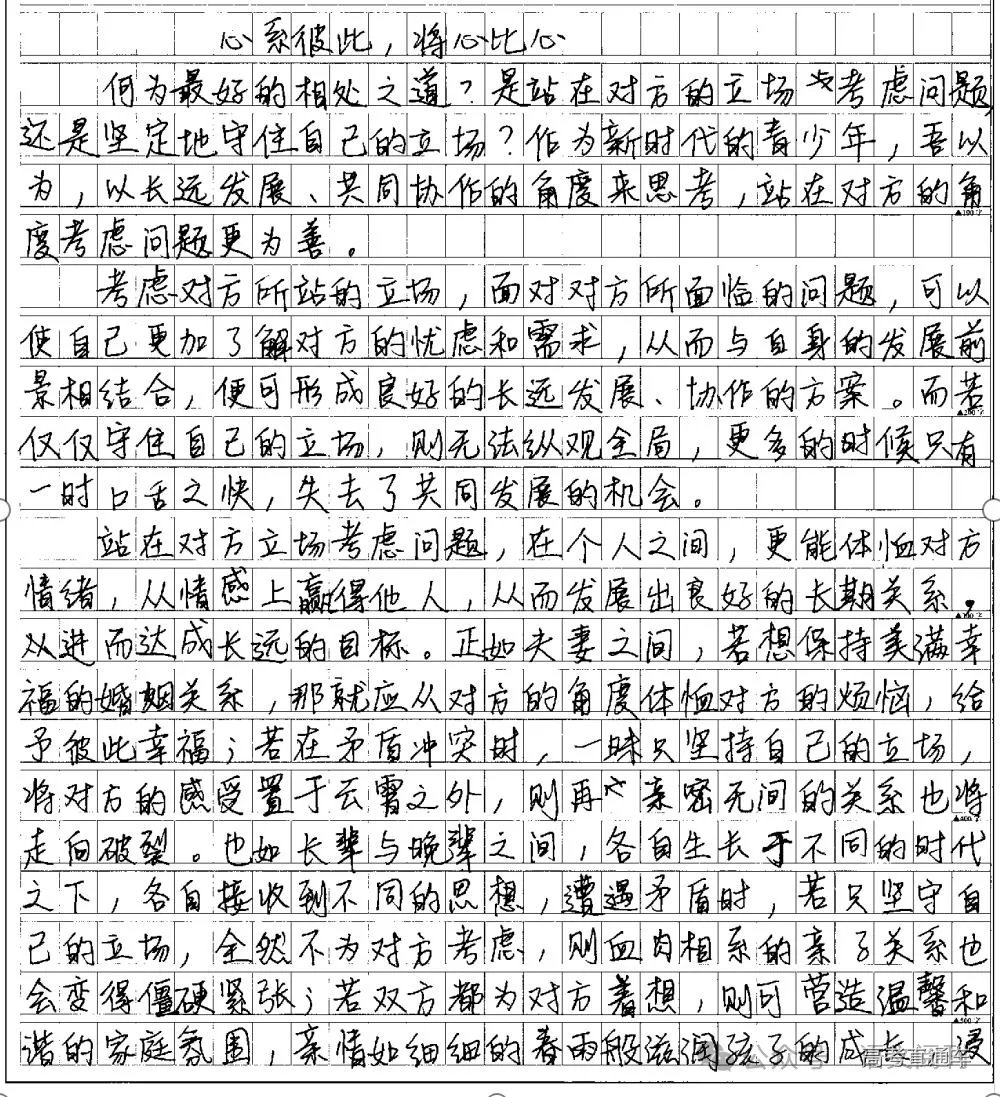 心系彼此，将心比心
何为最好的相处之道？是站在对方的立场考虑问题，
还是坚定地守住自己的立场？作为新时代的青少年，吾以
为，以长远发展、共同协作的角度来思考，站在对方的角
▲100字
度考虑问题更为善。
考虑对方所站的立场，面对对方所面临的问题，可以
使自己更加了解对方的忧虑和需求，从而与自身的发展前
景相结合，便可形成良好的长远发展、协作的方案。而若
▲200字
仅仅守住自己的立场，则无法纵观全局，更多的时候只有
一时口舌之快，失去了共同发展的机会。
站在对方立场考虑问题，在个人之间，更能体恤对方
情绪，从情感上赢得他人，从而发展出良好的长期关系，
▲300字
以进而达成长远的目标。正如夫妻之间，若想保持美满幸
福的婚姻关系，那就应从对方的角度体恤对方的烦恼，给
予彼此幸福；若在矛盾冲突时，一昧只坚持自己的立场，
将对方的感受置于云霄之外，则再亲密无间的关系也将
▲400字
走向破裂。也如长辈与晚辈之间，各自生长于不同的时代
之下，各自接收到不同的思想，遭遇矛盾时，若只坚守自
己的立场，全然不为对方考虑，则血肉相系的亲子关系也
会变得僵硬紧张；若双方都为对方着想，则可营造温馨和
▲500字
谐的家庭氛围，亲情如细细的春雨般滋润孩子的成长，浸
公众号 高考直通车